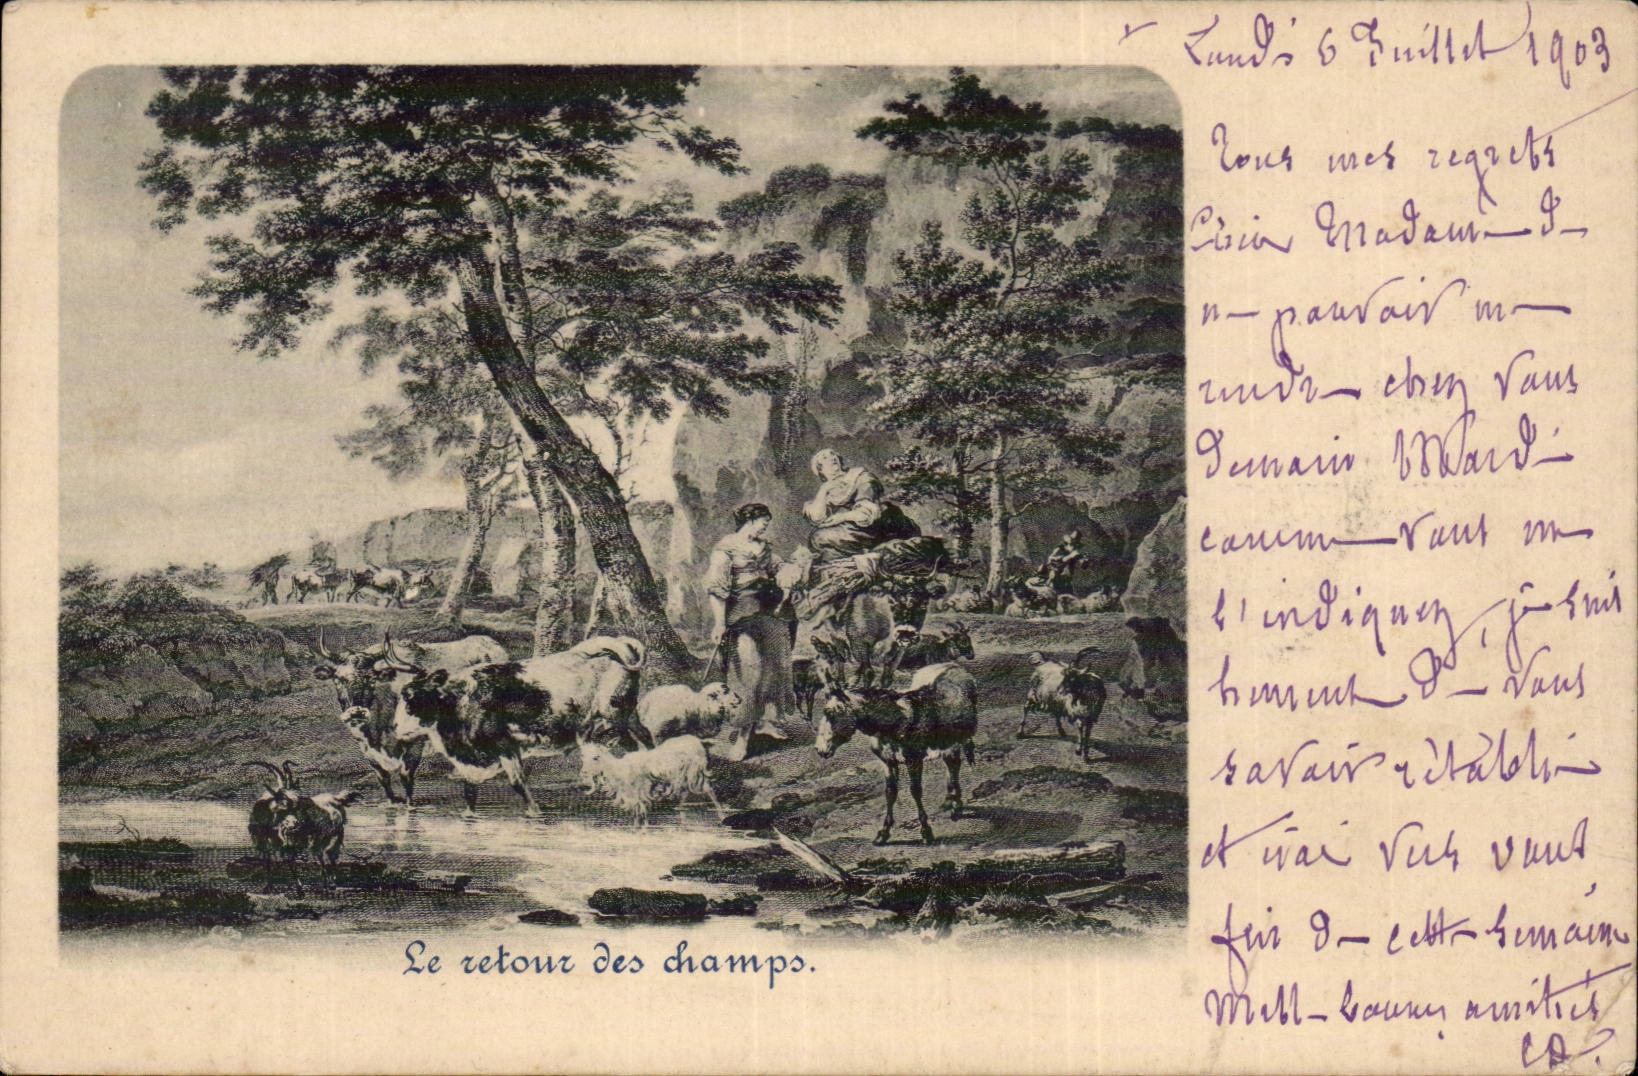 Lundi 6 Juillet 1903
Tous mes regrets
Chère Madame de
ne pouvoir me
rendre chez vous
demain Mardi
comme vous me
l'indiquez, je suis
heureux de vous
savoir rétablie
et irai vers vous
fin de cette semaine
Mille bonnes amitiés
Le retour des champs.